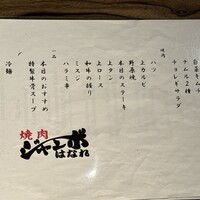 白菜キムチ
ナムル2種
チョレギサラダ
焼肉
ハツ
上カルビ
野原焼
本日のステーキ
上タン
上ロース
和牛の握り
ミスジ
ハラミ串
一品
本日のおすすめ
特製牛骨スープ
〆
冷麺
焼肉
ジャンボ
はなれ